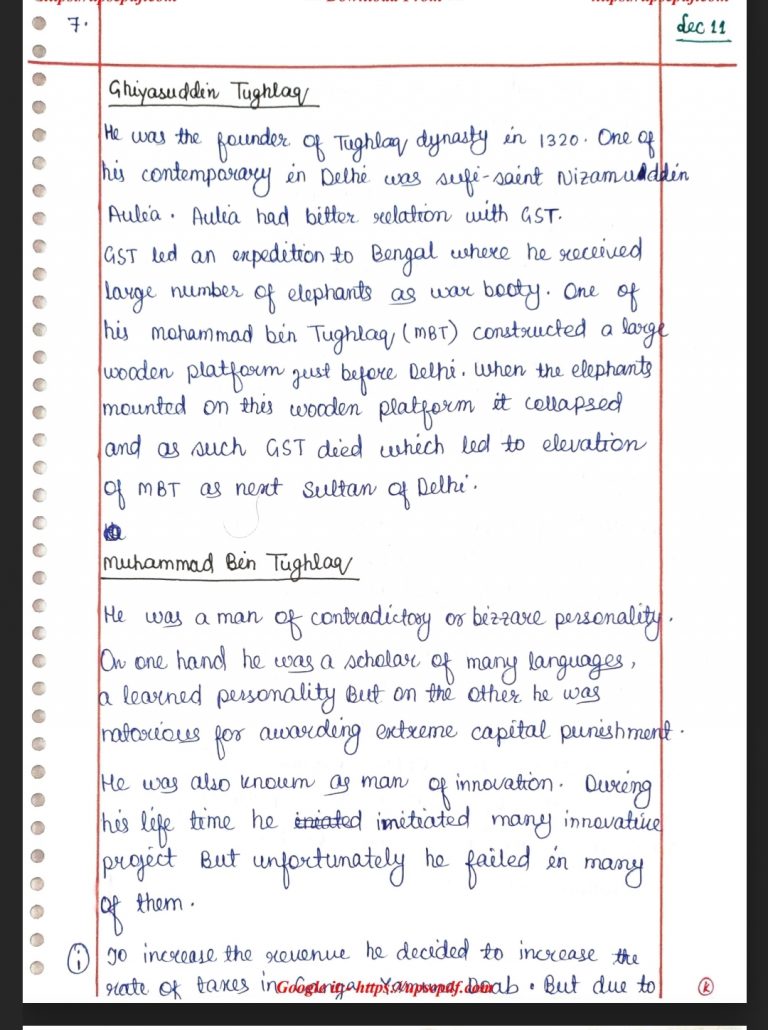 7.
Lec 11
Ghiyasuddin Tughlaq
He was the founder of Tughlaq dynasty in 1320. One of
his contemporary in Delhi was sufi-saint Nizamuddin
Aulia. Aulia had bitter relation with GST.
GST led an expedition to Bengal where he received
large number of elephants as war booty. One of
his mohammad bin Tughlaq (MBT) constructed a large
wooden platform just before Delhi. When the elephants
mounted on this wooden platform it collapsed
and as such GST died which led to elevation
of MBT as next Sultan of Delhi.
Muhammad Bin Tughlaq
He was a man of contradictory or bizzare personality.
On one hand he was a scholar of many languages,
a learned personality But on the other he was
notorious for awarding extreme capital punishment.
He was also known as man of innovation. During
his life time he initiated many innovative
project But unfortunately he failed in many
of them.
(i) To increase the revenue he decided to increase the
rate of taxes in Ganga Yamuna Doab. But due to
Google it:- https://upscpdf.com
K